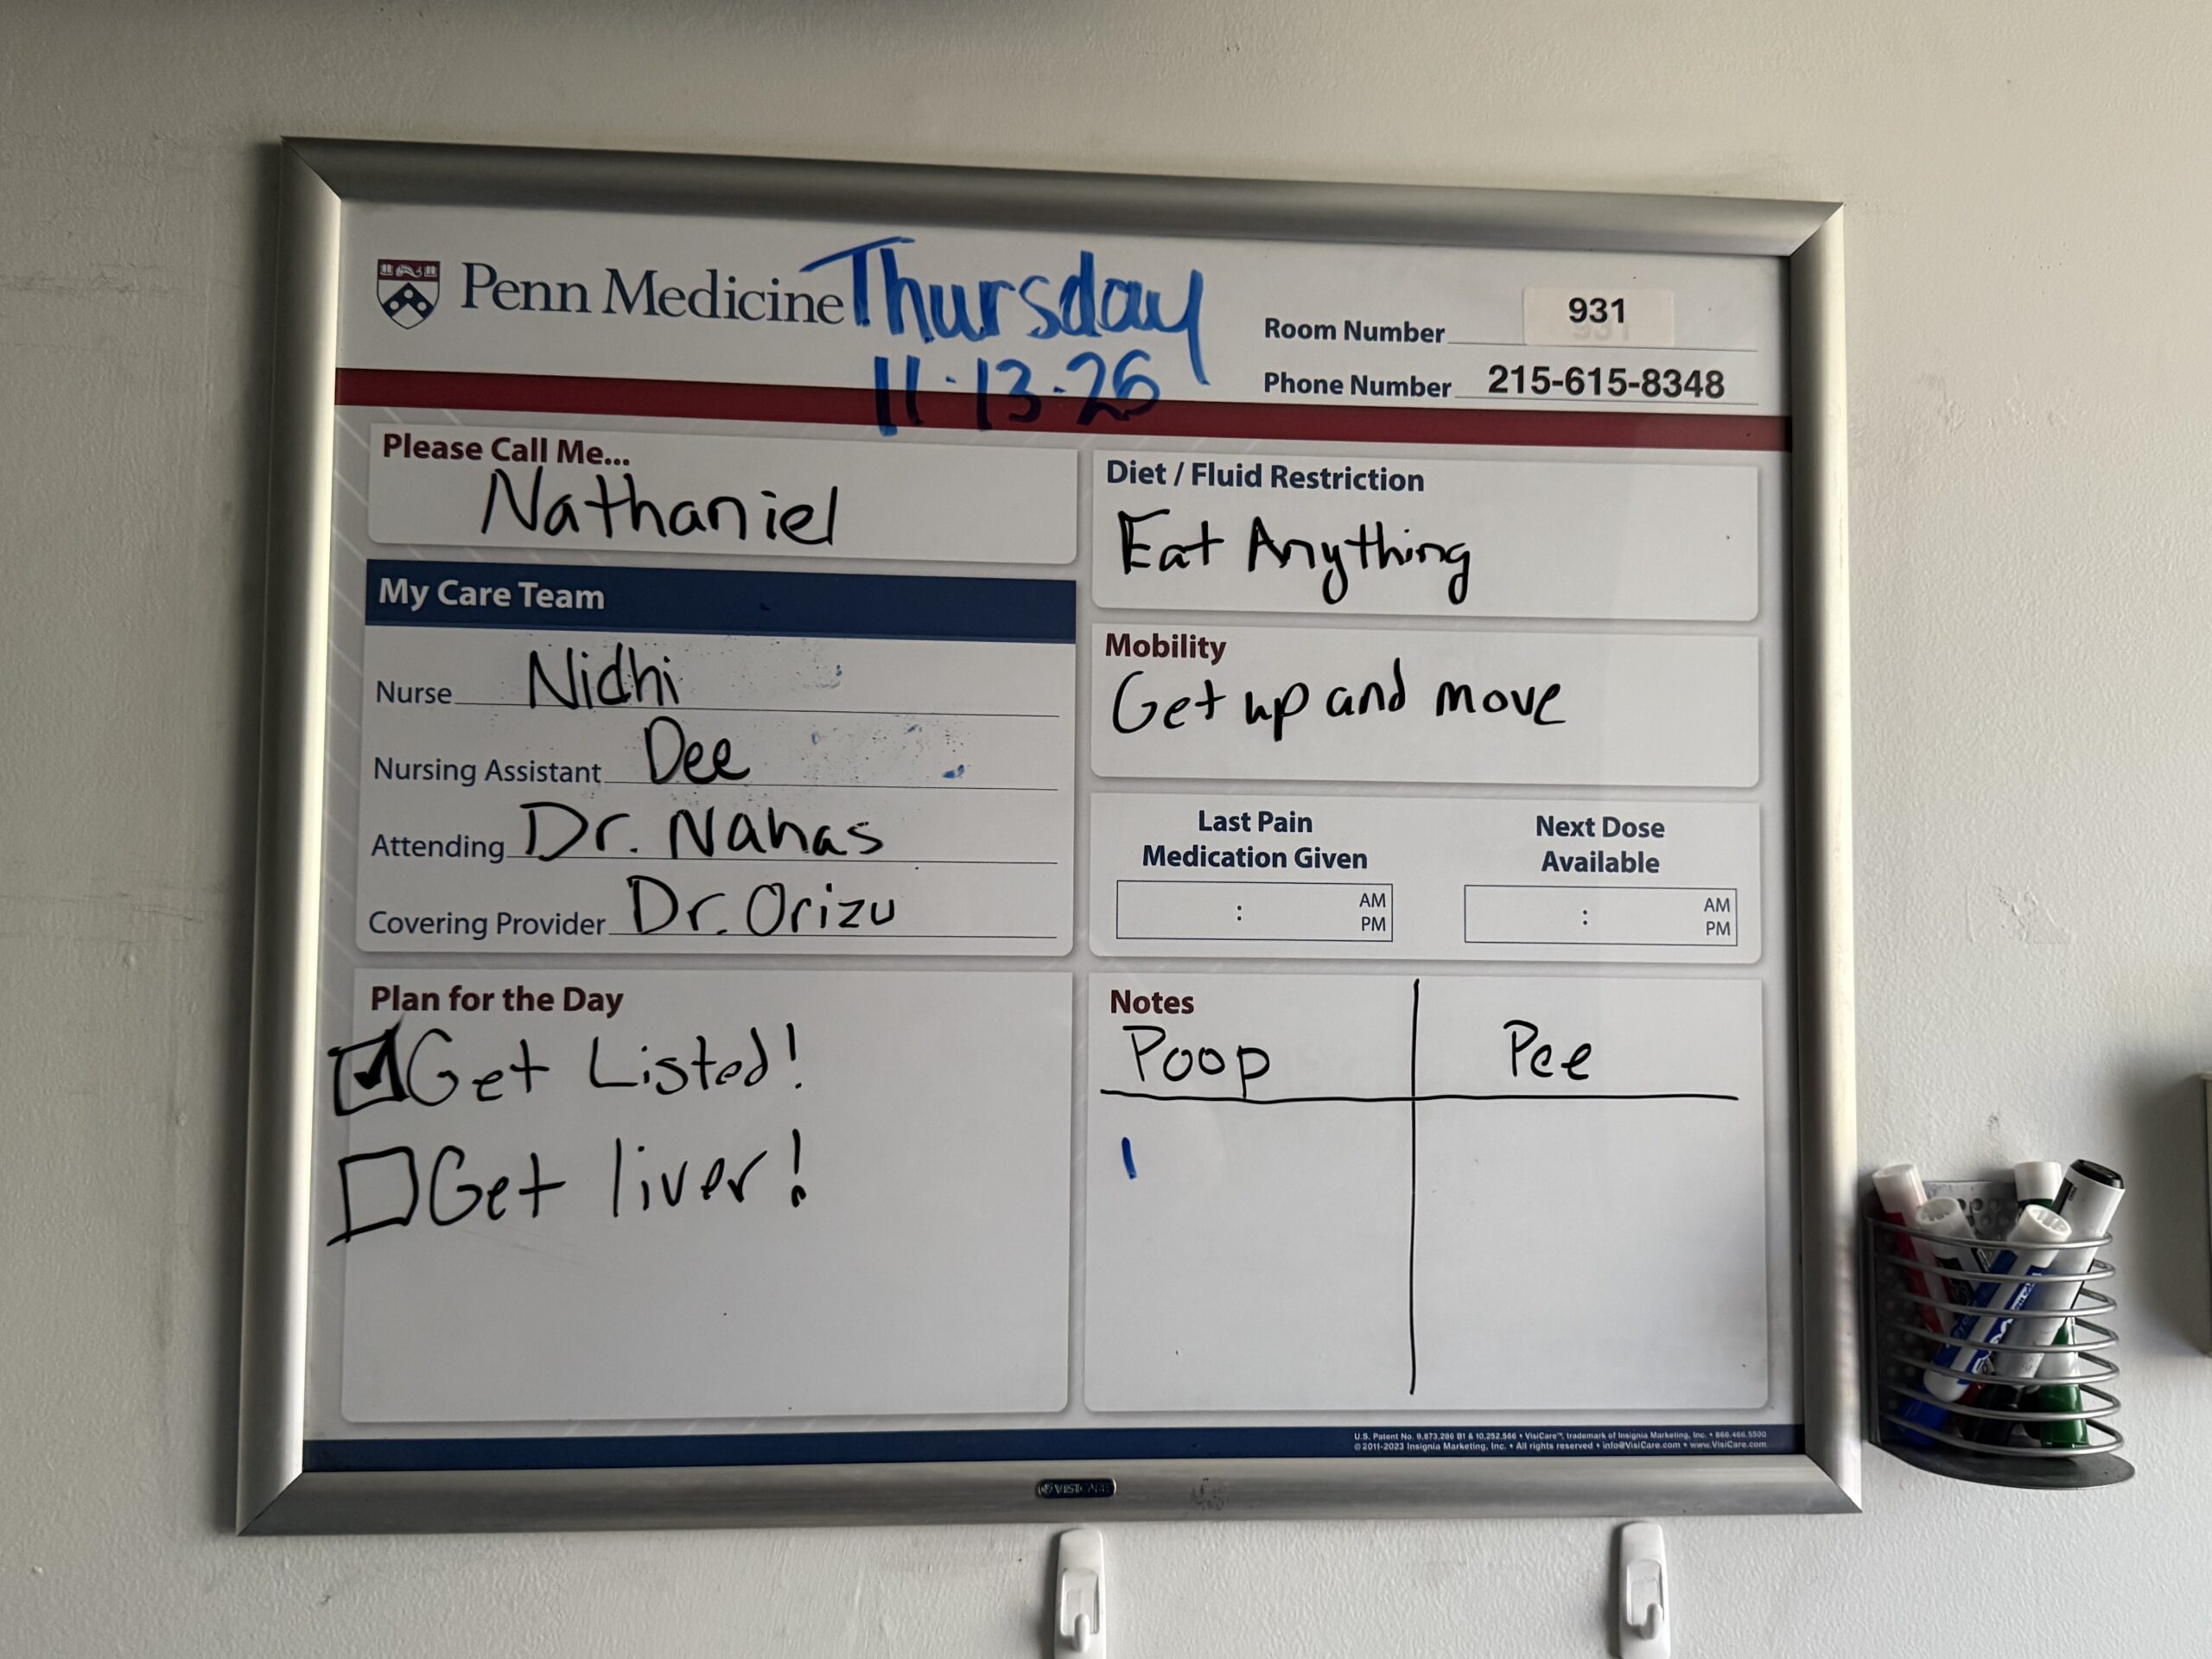 Penn Medicine
Thursday
11-13-26
Room Number 931
Phone Number 215-615-8348
Please Call Me...
Nathaniel
My Care Team
Nurse Nidhi
Nursing Assistant Dee
Attending Dr. Nahas
Covering Provider Dr. Orizu
Plan for the Day
Get Listed!
Get liver!
Diet / Fluid Restriction
Eat Anything
Mobility
Get up and move
Last Pain
Medication Given
: AM
PM
Next Dose
Available
: AM
PM
Notes
Poop Pee
I
U.S. Patent No. 9,873,299 B1 & 10,252,566 • VisiCare™, trademark of Insignia Marketing, Inc. • 866.466.5500
© 2011-2023 Insignia Marketing, Inc. • All rights reserved • info@VisiCare.com • www.VisiCare.com
VISICARE